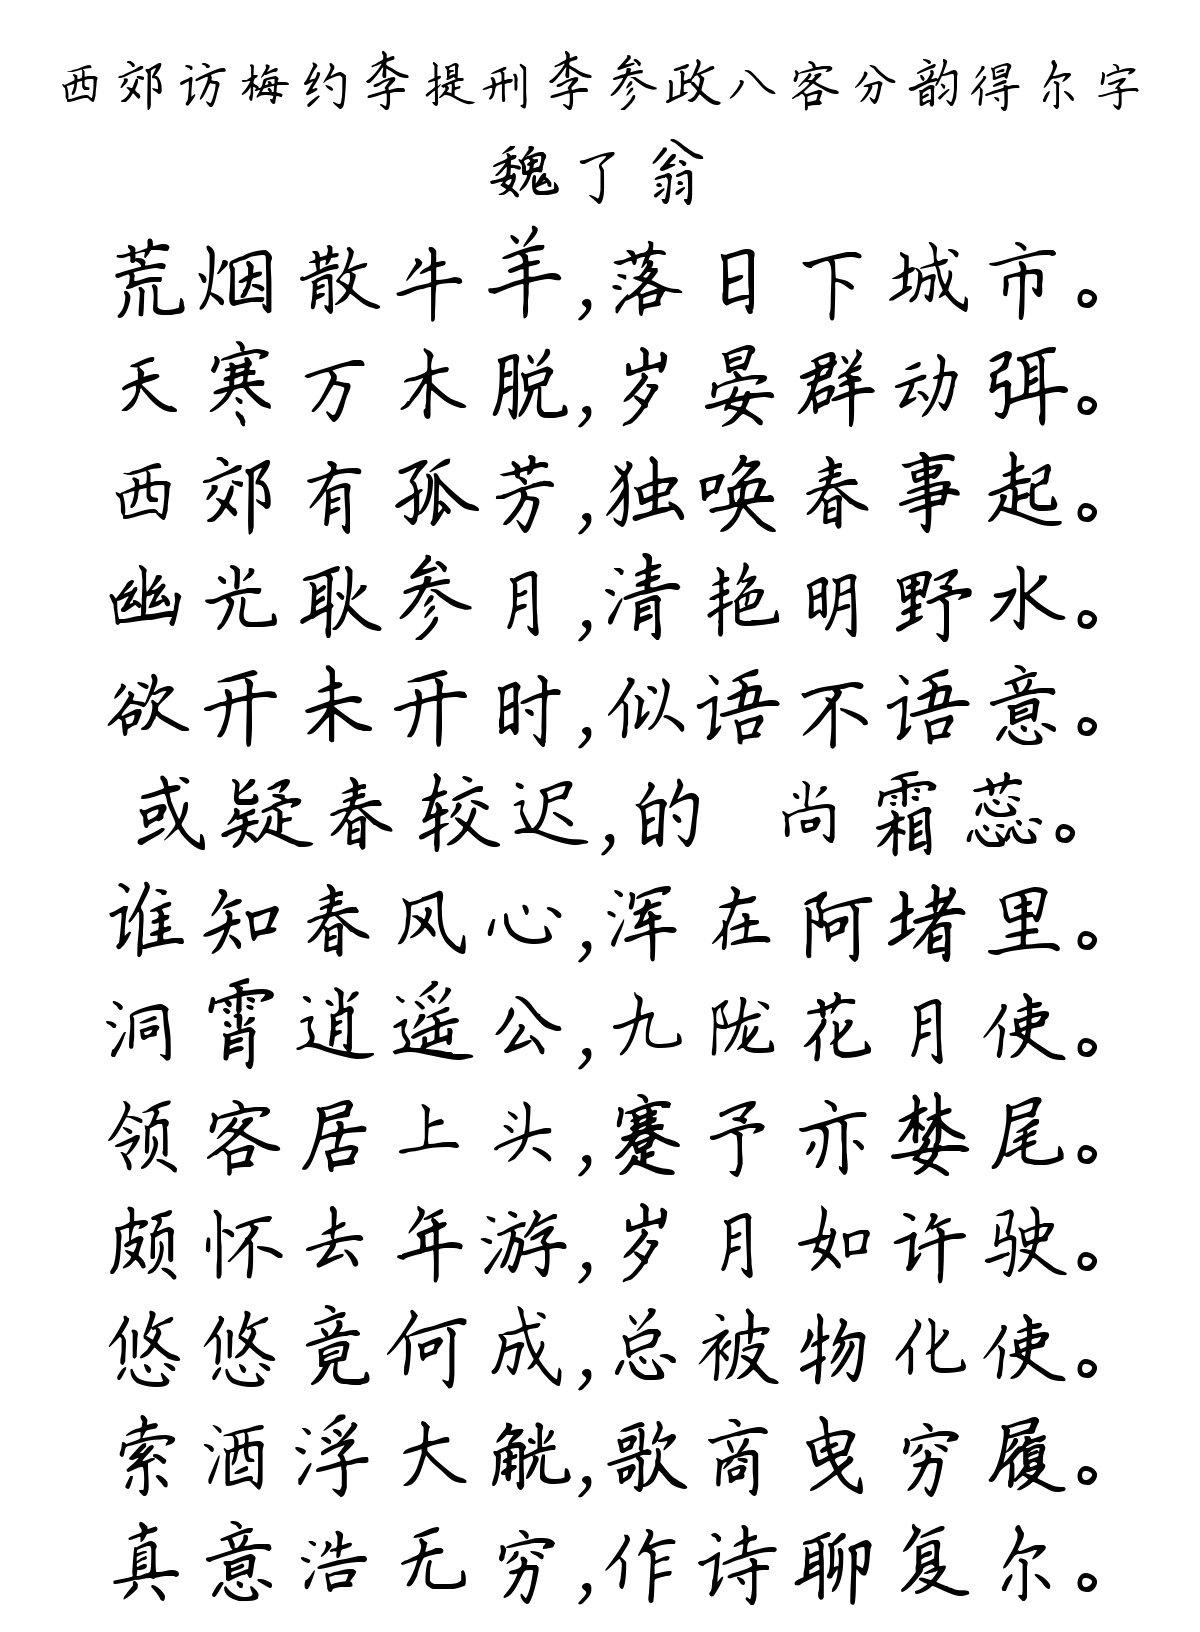 西郊访梅约李提刑李参政八客分韵得尔字
魏了翁
荒烟散牛羊,落日下城市。
天寒万木脱,岁晏群动弭。
西郊有孤芳,独唤春事起。
幽光耿参月,清艳明野水。
欲开未开时,似语不语意。
或疑春较迟,的 尚霜蕊。
谁知春风心,浑在阿堵里。
洞霄逍遥公,九陇花月使。
领客居上头,蹇予亦婪尾。
颇怀去年游,岁月如许驶。
悠悠竟何成,总被物化使。
索酒浮大觥,歌商曳穷履。
真意浩无穷,作诗聊复尔。